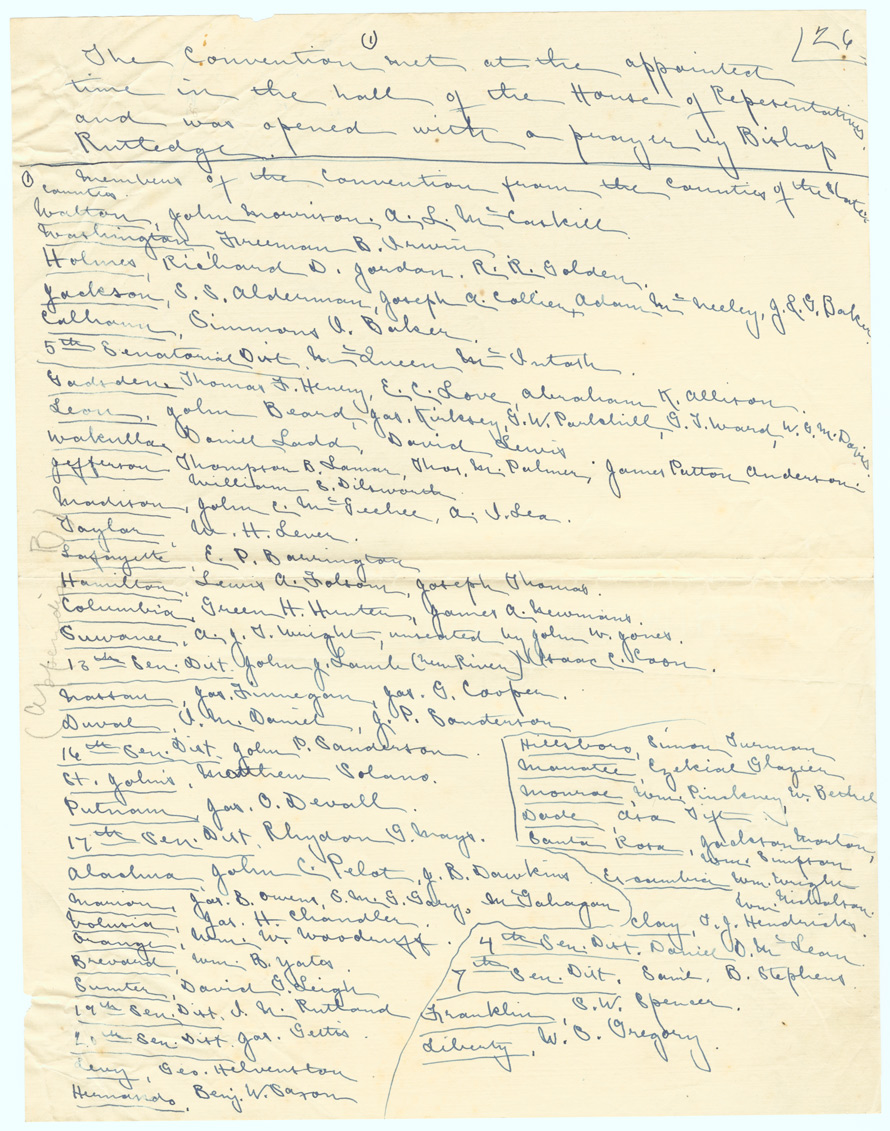 (1)
126
The Convention met at the appointed
time in the hall of the House of Representatives,
and was opened with a prayer by Bishop
Rutledge.
(1) Members of the Convention from the Counties of the State:
Counties.
Walton, John Morrison. A. L. McCaskill
Washington Freeman B. Irwin
Holmes, Richard D. Jordan. R. R. Golden.
Jackson, S. S. Alderman, Joseph A. Collier, Adam McNeeley, J. L. G. Baker
Calhoun, Simmons I. Baker.
5th Senatorial Dist. McQueen McIntosh.
Gadsden Thomas F. Henry, E. C. Love, Abraham K. Allison.
Leon, John Beard, Jas. Kirksey, G. W. Parkhill, G. T. Ward, W. G. M. Davis.
Wakulla Daniel Ladd, David Lewis
Jefferson Thompson B. Lamar, Thos. M. Palmer, James Patton Anderson.
William S. Dilworth
Madison, John C. McGehee, A. I. Lea.
Taylor, W. H. Lever.
Lafayette, E. P. Barrington
Hamilton, Lewis A. Folsom, Joseph Thomas.
Columbia, Green H. Hunter, James A. Newmans.
Suwanee, A. J. T. Wright, unseated by John W. Jones.
13th Sen. Dist. John J. Lamb (New River) Isaac C. Coon.
Nassau, Jas. Finnegan, Jas. G. Cooper.
Duval, J. M. Daniel, J. P. Sanderson
16th Sen. Dist. John P. Sanderson.
St. Johns, Matthew Solano.
Putnam, Jas. O. Devall.
17th Sen. Dist. Rhydon G. Mays.
Alachua, John C. Pelot, J. B. Dawkins
Marion, Jas. B. Owens, S. M. G. Gary, McGahagan
Volusia, Jas. H. Chandler.
Orange, Wm. W. Woodruff.
Brevard, Wm. B. Yates.
Sumter, David G. Leigh
19th Sen. Dist. I. N. Rutland
20th Sen. Dist. Jas. Gettis.
Levy, Geo. Helvenston
Hernando, Benj. W. Saxon
Hillsboro, Simon Turman
Manatee, Ezekial Glazier
Monroe, Wm. Pinckney, W. Bethel
Dade, Asa Tift
Santa Rosa, Jackson Morton,
Wm. Simpson
Escambia Wm. Wright
Wm. Nicholson.
Clay, T. J. Hendricks.
4th Sen. Dist. Daniel D. McLean.
7th Sen. Dist. Saml. B. Stephens.
Franklin, S. W. Spencer.
Liberty, W. S. Gregory.
(Appendix B)